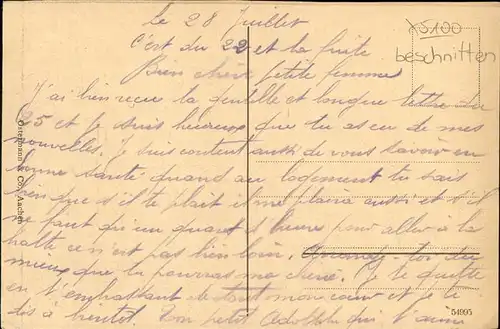 le 28 Juillet
X5100
beschnitten
C'est du 22 et la suite
Bien chère petite femme
J'ai bien reçu ta gentille et longue lettre du
25 et je suis heureux que tu as eu de mes
nouvelles. Je suis content aussi de vous savoir en
bonne santé quand au logement tu sais
bien que s'il te plait il me plaira aussi et s'il
ne faut qu'un quart d'heure pour aller à la
halte ce n'est pas bien loin. toi du
mieux que tu pourras ma chérie. Je te quitte
en t'embrassant de tout mon cœur et je te
dis à bientôt. Ton petit Adolphe qui t'aime
Ostermann & Co., Aachen
54995